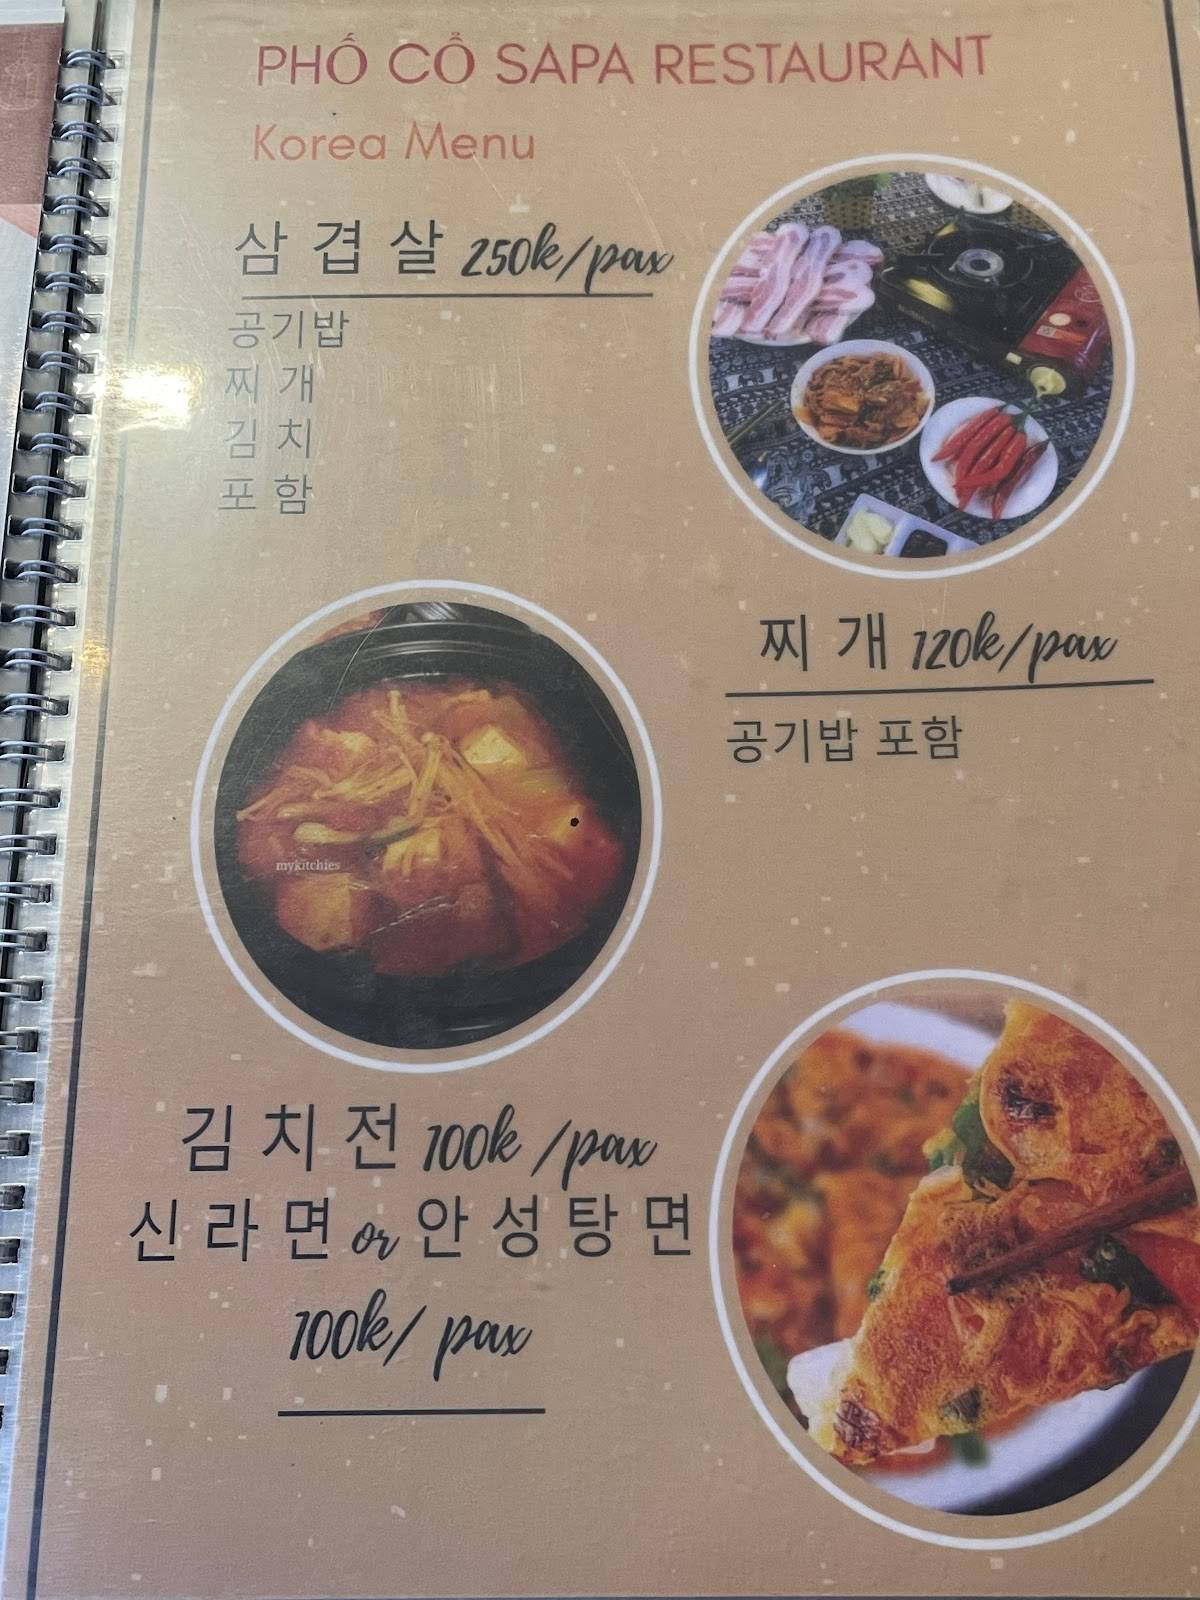 PHỐ CỔ SAPA RESTAURANT
Korea Menu
삼겹살 250k/pax
공기밥
찌개
김치
포함
찌개 120k/pax
공기밥 포함
mykitchies
김치전 100k /pax
신라면 or 안성탕면
100k/ pax